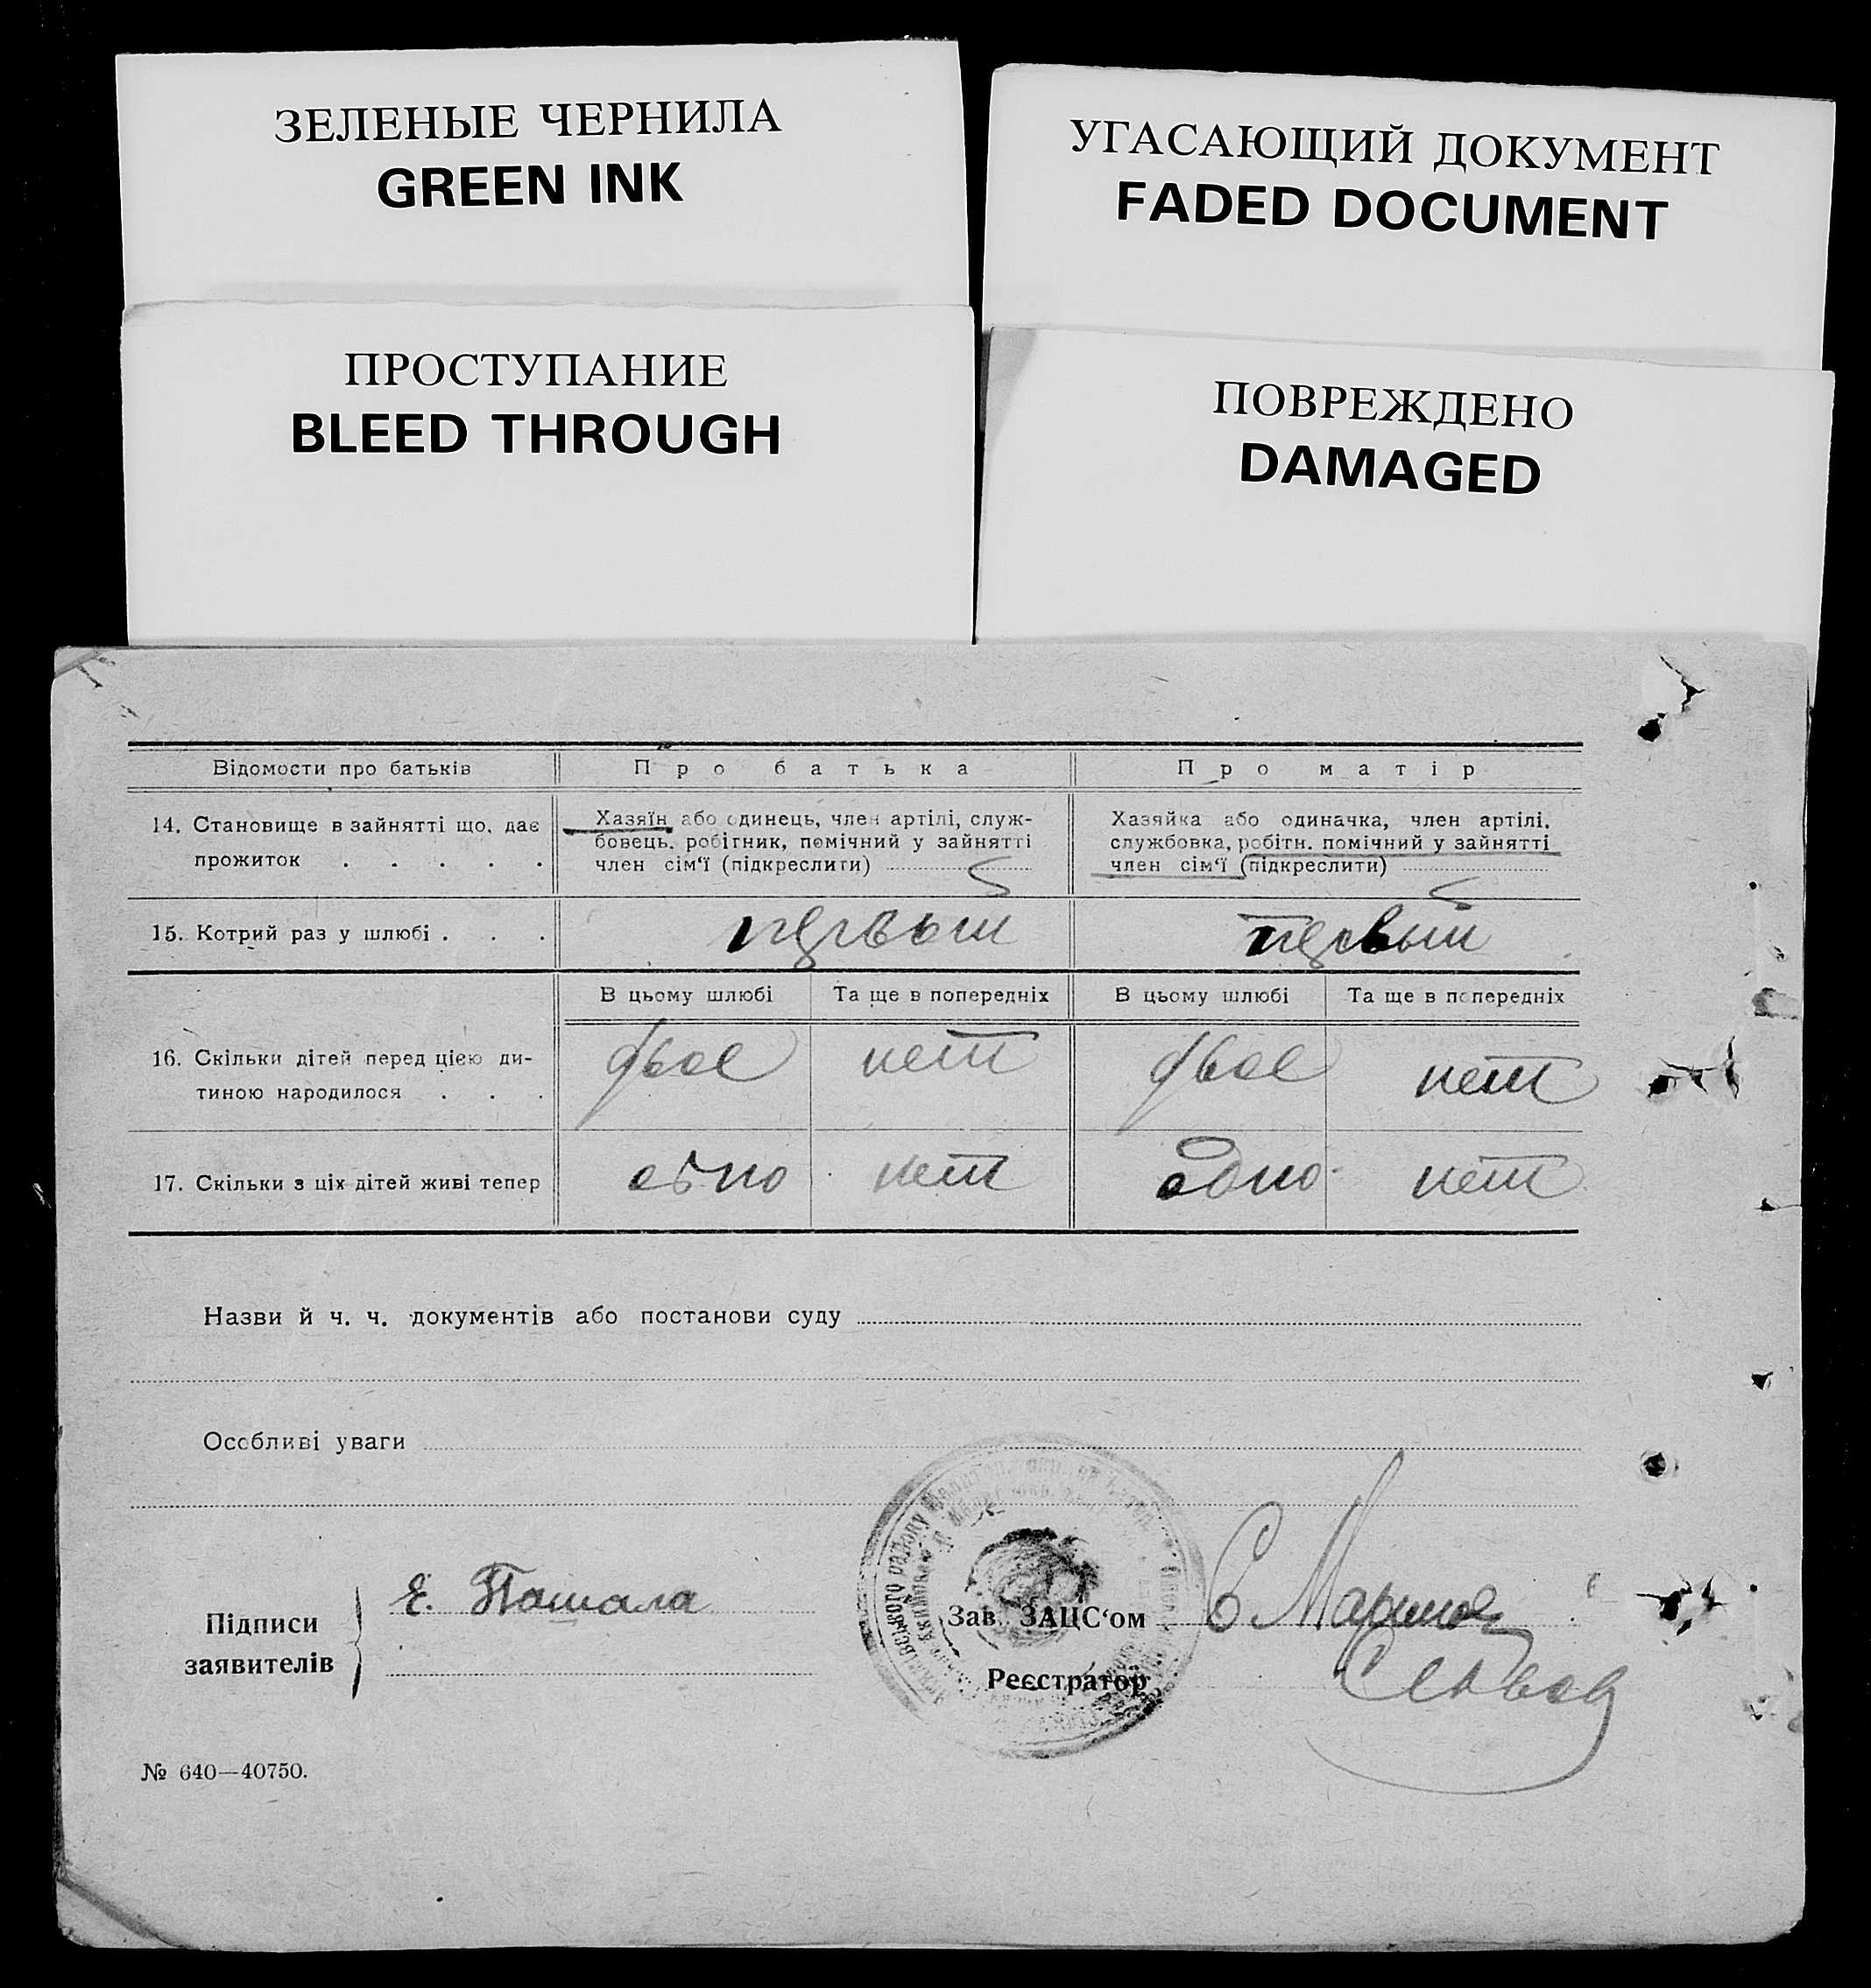 ЗЕЛЕНЫЕ ЧЕРНИЛА
GREEN INK
УГАСАЮЩИЙ ДОКУМЕНТ
FADED DOCUMENT
ПРОСТУПАНИЕ
BLEED THROUGH
ПОВРЕЖДЕНО
DAMAGED
Відомости про батьків
Про батька
Про матір
14. Становище в зайнятті що, дає
прожиток . . . . .
Хазяїн або одинець, член артілі, служ-
бовець, робітник, помічний у зайнятті
член сім'ї (підкреслити)
Хазяйка або одиначка, член артілі,
службовка, робітн. помічний у зайнятті
член сім'ї (підкреслити)
15. Котрий раз у шлюбі . . .
первый
первый
В цьому шлюбі
Та ще в попередніх
В цьому шлюбі
Та ще в попередніх
16. Скільки дітей перед цією ди-
тиною народилося . . .
двое
нет
двое
нет
17. Скільки з ціх дітей живі тепер
одно
нет
одно
нет
Назви й ч. ч. документів або постанови суду
Особливі уваги
Підписи
заявителів
Е.
Зав. ЗАЦС'ом
Реєстратор
№ 640—40750.